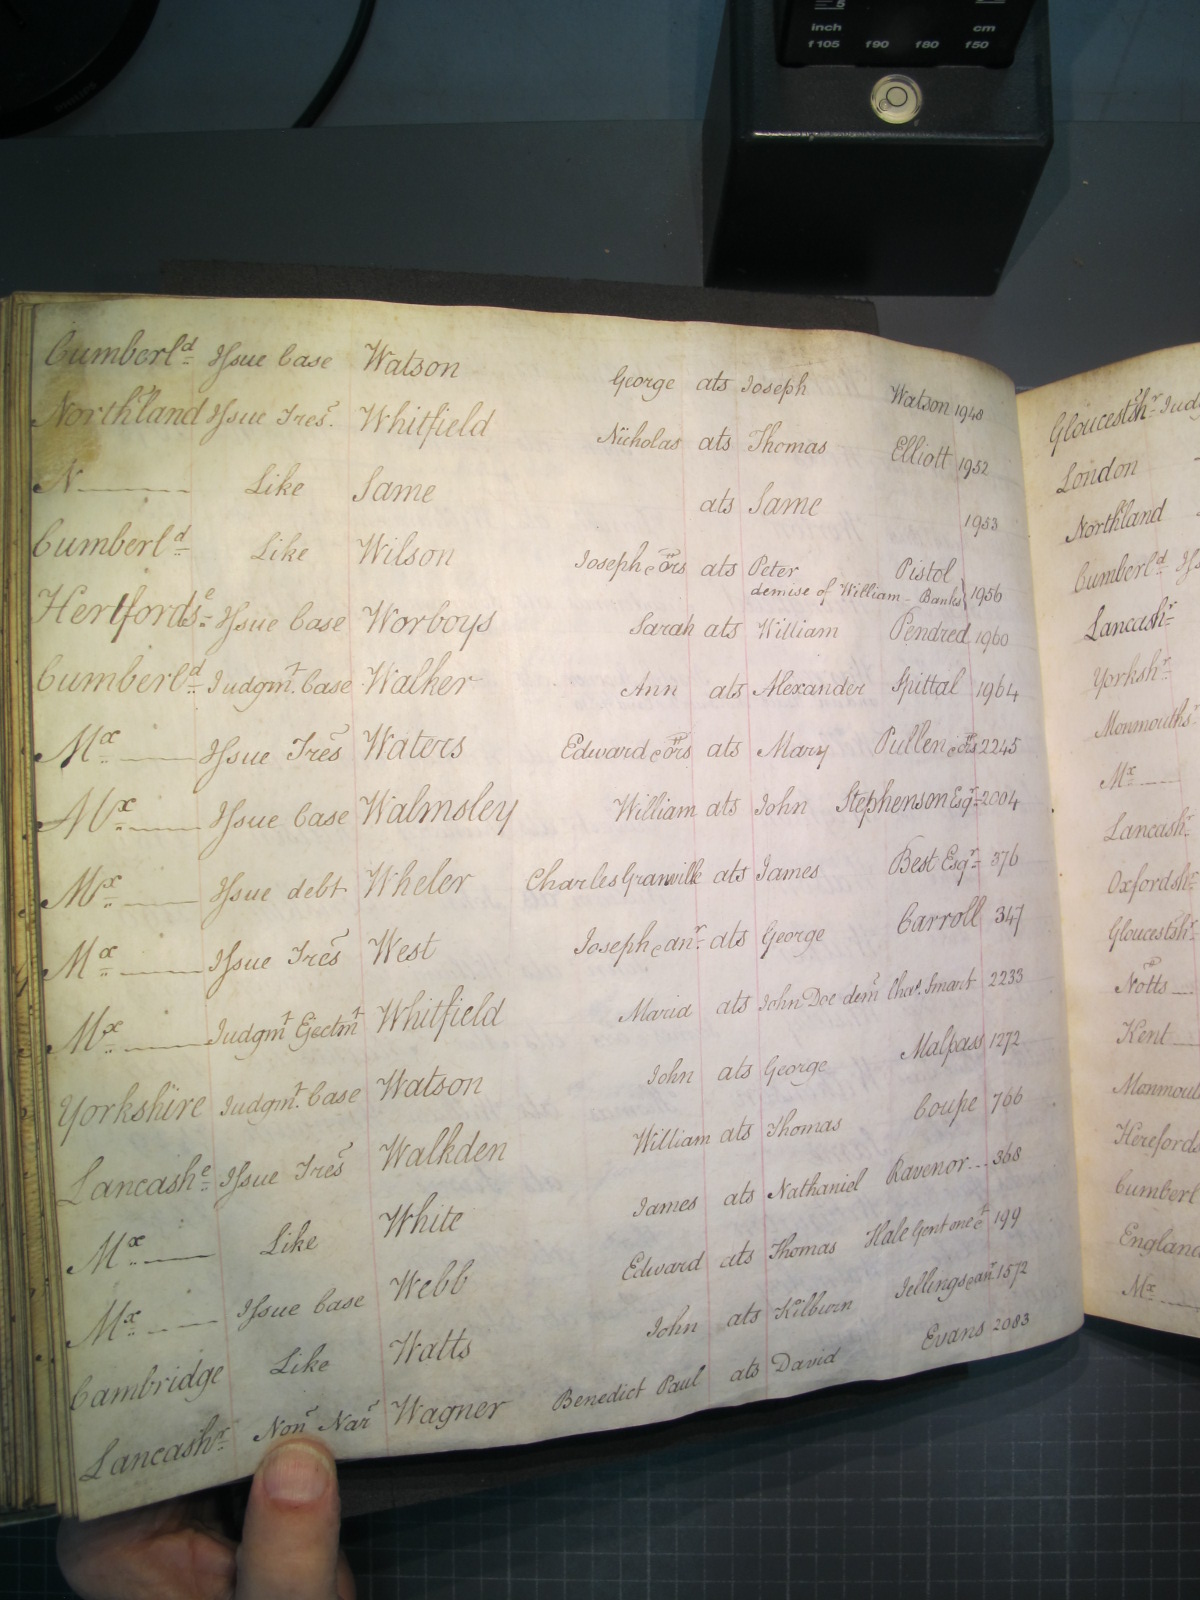 5
inch cm
f105 f90 f80 f50
PHILIPS
Cumberld Issue Case Watson George ats Joseph Watson 1948
Northland Issue Tres. Whitfield Nicholas ats Thomas Elliott 1952
N Like Same ats Same 1953
Cumberld Like Wilson Joseph & ors ats Peter Pistol
demise of William Banks 1956
Hertfordse Issue Case Worboys Sarah ats William Pendred 1960
Cumberld Judgmt. Case Walker Ann ats Alexander Spittal 1964
Mx Issue Tres Waters Edward & ors ats Mary Pullen & ors 2245
Mx Issue Case Walmsley William ats John Stephenson Esqr 2004
Mx Issue debt Wheler Charles Granville ats James Best Esqr 376
Mx Issue Tres West Joseph & anr ats George Carroll 347
Mx Judgmt Ejectmt Whitfield Maria ats John Doe dem Chas. Smart 2233
Yorkshire Judgmt. Case Watson John ats George Malpass 1272
Lancashe Issue Tres Walkden William ats Thomas Coupe 766
Mx Like White James ats Nathaniel Ravenor 368
Mx Issue Case Webb Edward ats Thomas Hale Gent one &ct 199
Cambridge Like Watts John ats Kilburn Jellings & an 1572
Lancashr Non Nar Wagner Benedict Paul ats David Evans 2083
Gloucestshr Judg
London
Northland
Cumberld Iss
Lancashr
Yorkshr
Monmouths
Mx
Lancashr
Oxfordshe
Gloucestshr
Notts
Kent
Monmout
Herefords
Cumberl
England
Mx